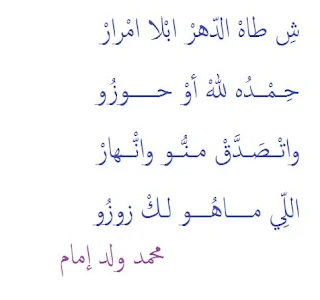 شِ طاهْ الدّهرْ ابْلا امْرارْ
حِـمْـدُه للهْ أوْ حـــوزُو
واتْـصَـدَّقْ مـنُّـو وانْـهارْ
اللِّي مـــاهُـــو لـكْ زوزُو
محمد ولد إمام